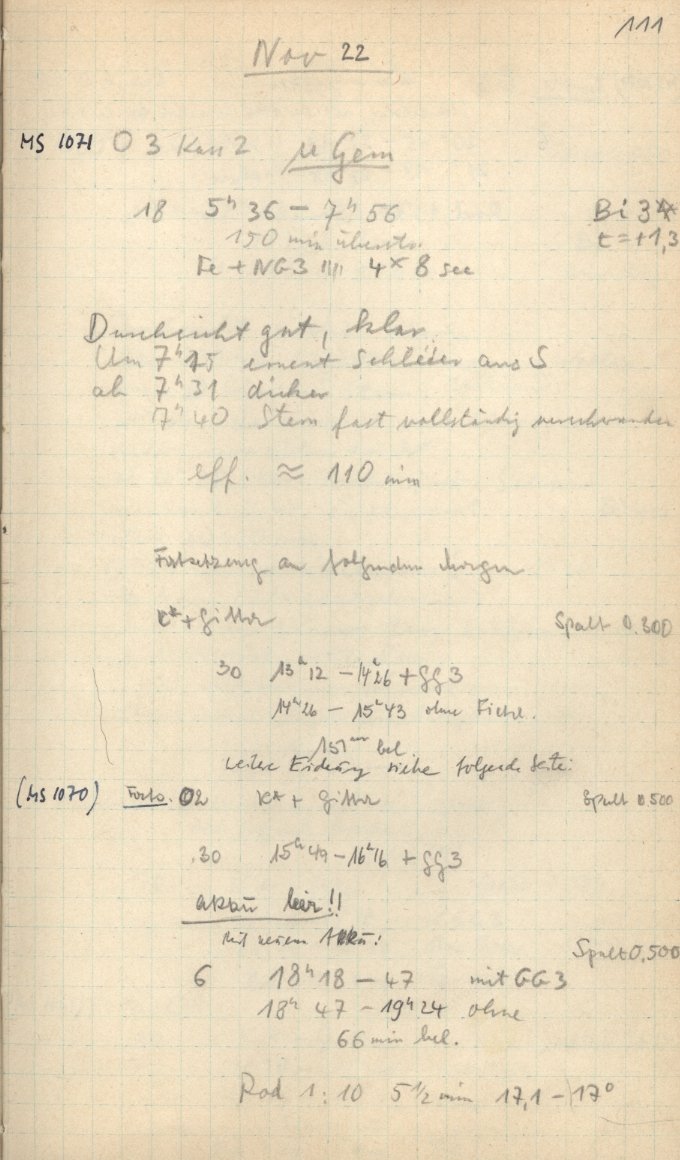 111
Nov 22
MS 1071 O 3 Kass 2 μ Gem
18 5ʰ 36 – 7ʰ 56 Bi 34
150 min überstr. t = +1,3
Fe + NG3 4ˣ 8 sec
Durchsicht gut, klar
Um 7ʰ 15 erneut Schleier aus S
ab 7ʰ 31 dicker
7ʰ 40 Stern fast vollständig verschwunden
eff. ≈ 110 min
Fortsetzung am folgenden Morgen
K* + Gitter Spalt 0.300
30 13ʰ12 – 14ʰ26 + GG3
14ʰ26 – 15ʰ43 ohne
151ᵐⁱⁿ bel.
siehe folgende Seite:
(MS 1070) Forts. O2 K* + Gitter Spalt 0.500
30 15ʰ49 – 16ʰ16 + GG3
Akku leer!!
Mit neuem Akku:
Spalt 0,500
6 18ʰ 18 – 47 mit GG3
18ʰ 47 – 19ʰ 24 ohne
66 min bel.
Rod 1:10 5 1/2 min 17,1 – 17°